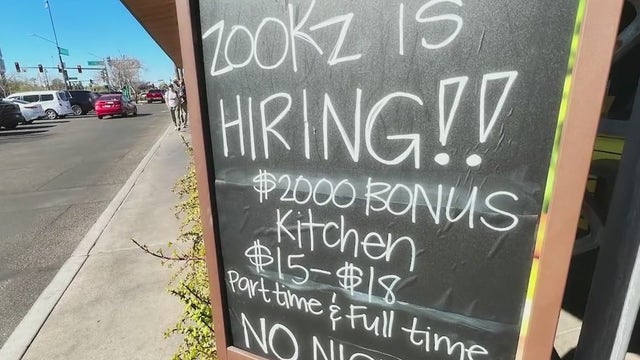 zookz is
HIRING!!
$2000 BONUS
Kitchen
$15-$18
part time & Full time
NO